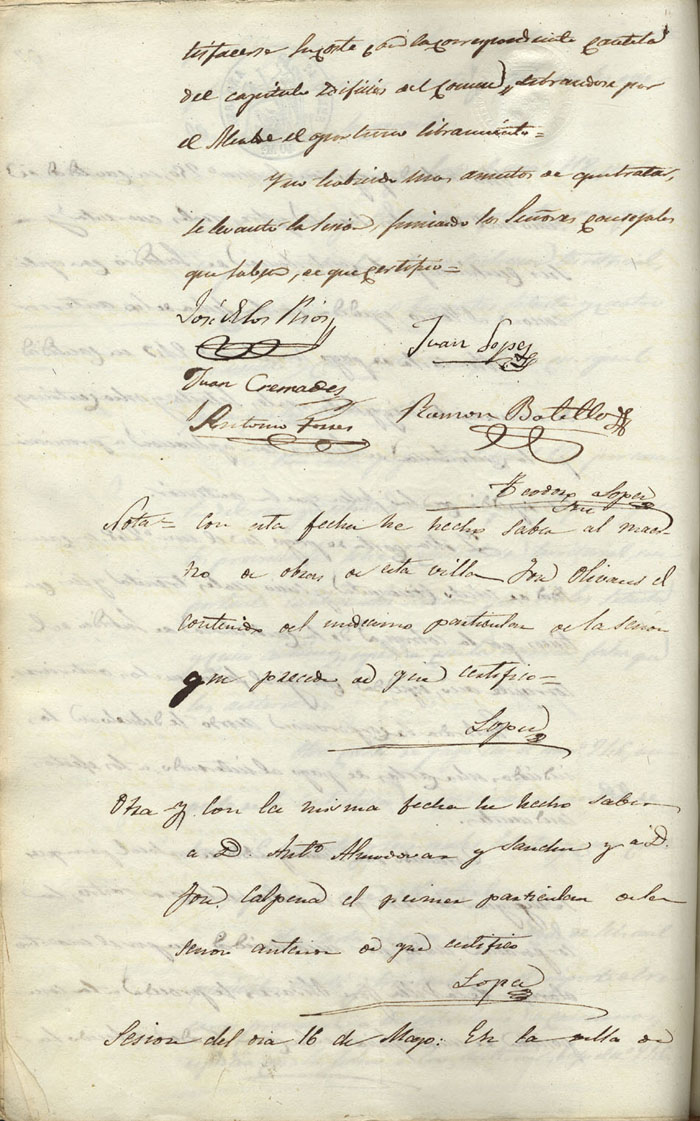 tisfacerse su coste con la correspondiente cautela
del capitulo Edificios del Comun, librandose por
el Alcalde el oportuno libramiento=
Y no habiendo mas asuntos de que tratar,
se levantó la sesion, firmando los Señores concejales
que saben, de que certifico=
José de los Rios
Juan Lopez
Juan Cremades
Antonio Torres
Ramon Botella
Teodoro Lopez
Nota= Con esta fecha he hecho saber al maes-
tro de obras de esta villa José Olivares el
contenido del undecimo particular de la sesion
que precede de que certifico=
Lopez
Otra y con la misma fecha he hecho saber
a D. Antº Almodovar y Sanchez y a D.
José Calpena el primer particular de la
sesion anterior de que certifico
Lopez
Sesion del dia 16 de Mayo: En la villa de